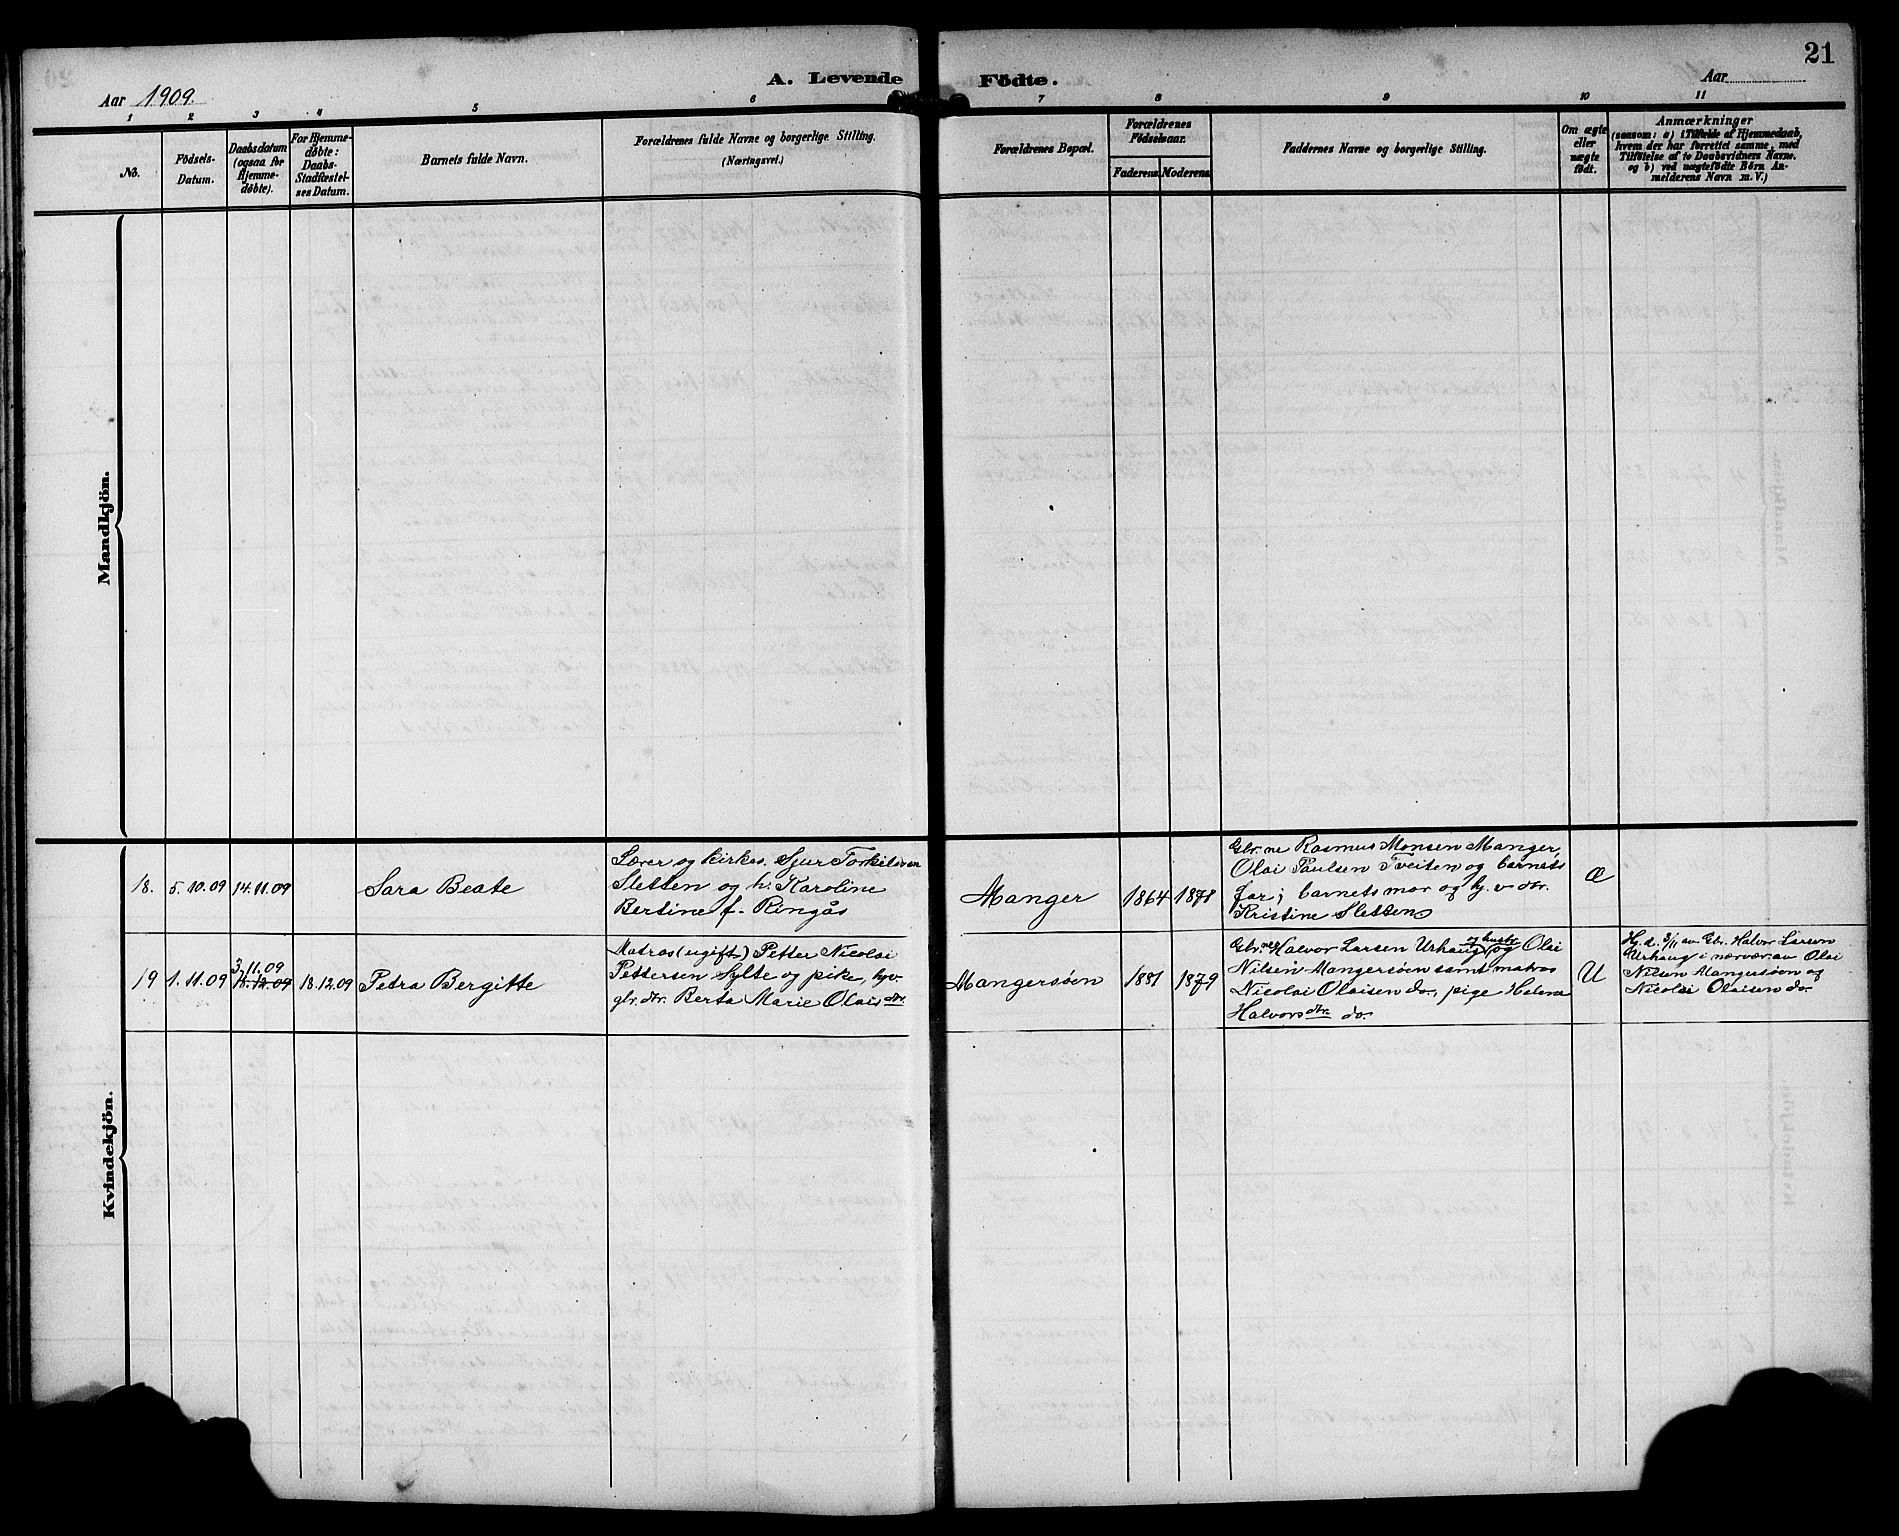 21
A. Levende Födte.
Aar 1909.
Aar
1 2 3 4 5 6 7 8 9 10 11
No.
Födsels-
Datum.
Daabsdatum
(ogsaa for
Hjemme-
døbte).
For Hjemme-
døbte:
Daabs-
Stadfæstel-
ses Datum.
Barnets fulde Navn.
Forældrenes fulde Navne og borgerlige Stilling.
(Næringsvei.)
Forældrenes Bopæl.
Forældrenes
Födselsaar.
Faderens. Moderens.
Faddernes Navne og borgerlige Stilling.
Om ægte
eller
uægte
födt.
Anmærkninger
(saasom: a) i Tilfælde af Hjemmedaab,
hvem der har forrettet samme, med
Tilföielse af to Daabsvidners Navne,
og b) ved uægtefödte Börn An-
melderens Navn m. V.)
Mandkjön.
Kvindekjön.
18.
5.10.09
14.11.09
Sara Beate
Lærer og kirkes. Sjur Torkilsen
Sletten og h. Karoline
Bertine f. Ringås
Manger
1864
1878
Gbr.ne Rasmus Monsen Manger,
Olai Paulsen Tveiten og barnets
far; barnets mor og hj.v. dtr.
Kristine Sletten
Æ
19
1.11.09
3.11.09
18.12.09
18.12.09
Petra Bergitte
Matros (ugift) Petter Nicolai
Pettersen Sylte og pike, hjv.
gbr. dtr. Berta Marie Olais dtr.
Mangersöen
1881
1879
Gbr.ne Halvor Larsen Urhaug og hustr. og Olai
Nilsen Mangersöen samt matros
Nicolai Olaisen do., pige Helene
Halvors dtr. do.
U
Hj. d. 3/11 av Gbr. Halvor Larsen
Urhaug i nærvær av Olai
Nilsen Mangersöen og
Nicolai Olaisen do.